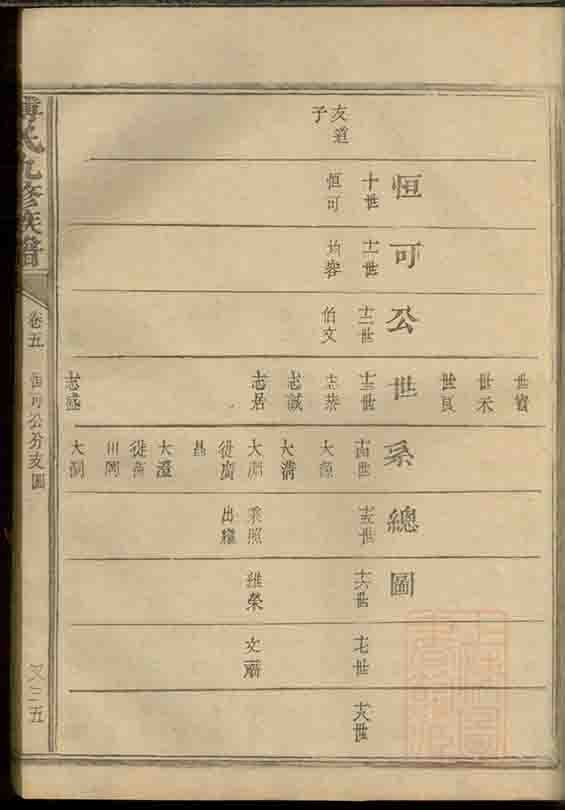 世賓
世禾
世良
恒可公世系總圖
十世
十一世
十二世
十三世
十四世
十五世
十六世
十七世
十八世
友道
子
恒可
均容
伯文
志恭
大源
志誠
大溝
志居
大淵
秉照
維榮
文爵
從廣
出繼
昌
大澄
從衡
志盛
大洞
氏九修族譜
卷五
恒可公分支圖
又三五